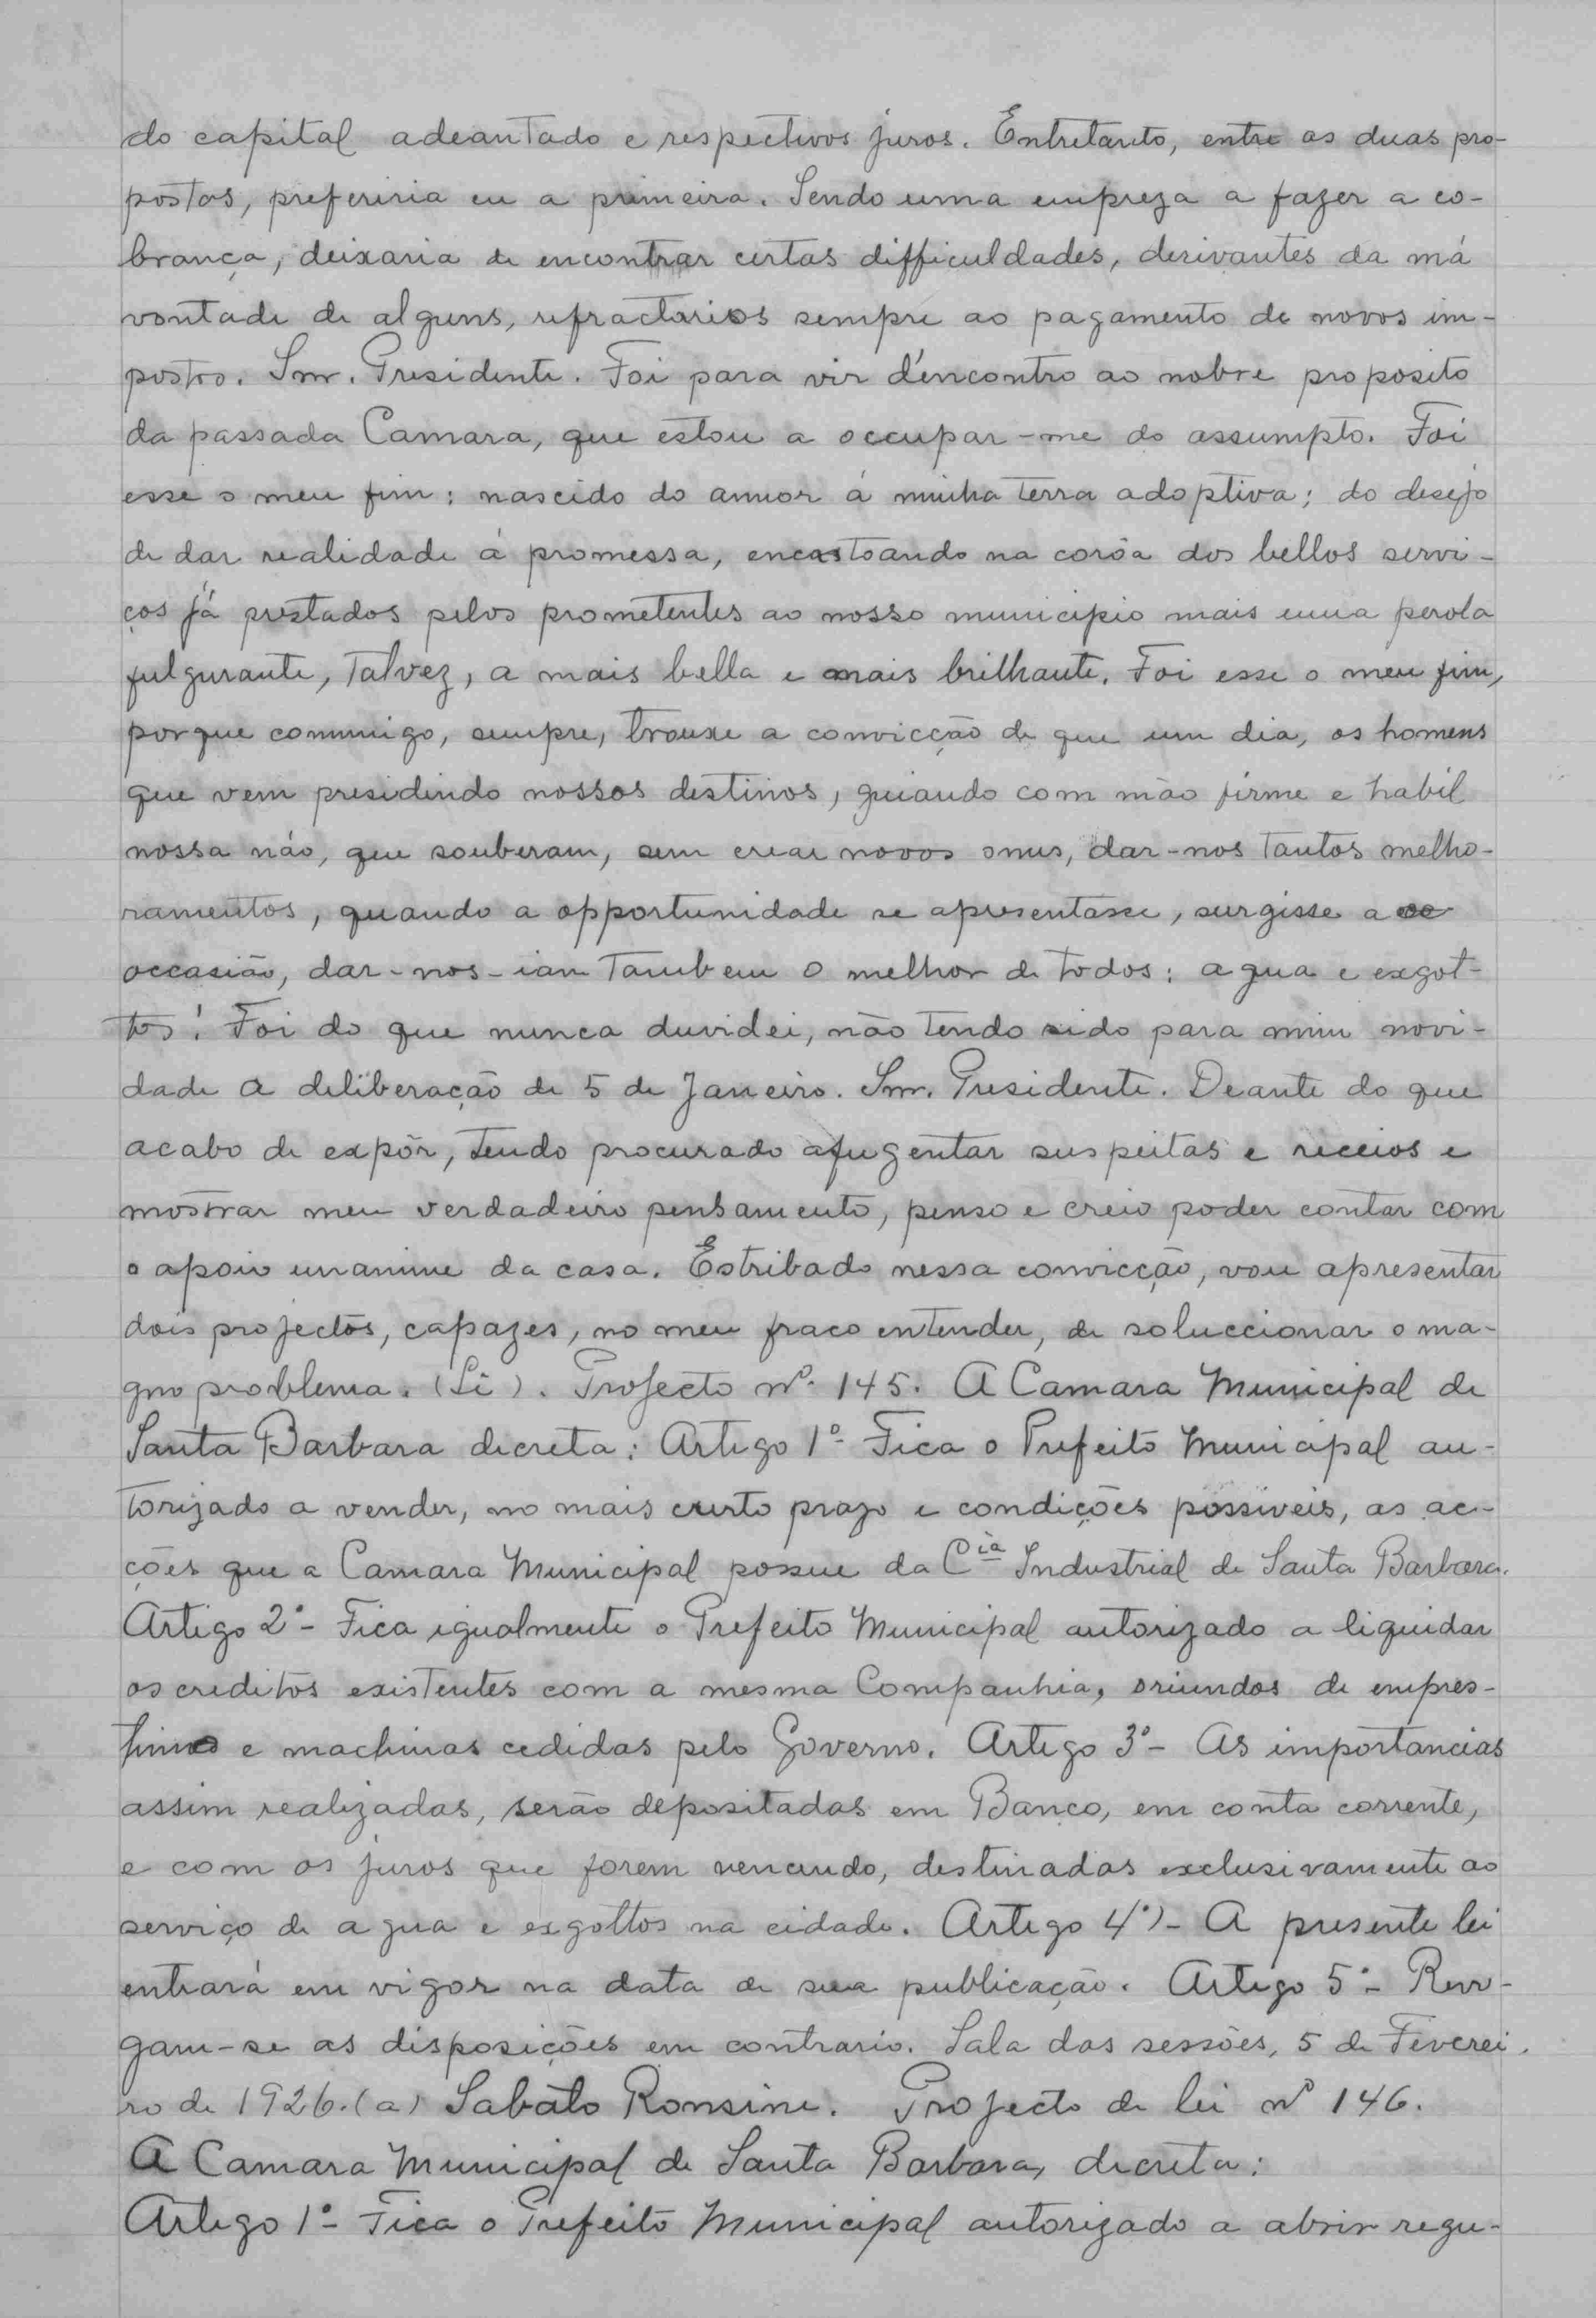 do capital adeantado e respectivos juros. Entretanto, entre as duas pro-
postas, preferiria eu a primeira. Sendo uma empreza a fazer a co-
brança, deixaria de encontrar certas difficuldades, derivantes da má
vontade de alguns, refractarios sempre ao pagamento de novos im-
postos. Snr. Presidente. Foi para vir d'encontro ao nobre proposito
da passada Camara, que estou a occupar-me do assumpto. Foi
esse o meu fim: nascido do amor á minha terra adoptiva; do desejo
de dar realidade á promessa, encastoando na corôa dos bellos servi-
ços já prestados pelos prometentes ao nosso municipio mais uma perola
fulgurante, talvez, a mais bella e mais brilhante. Foi esse o meu fim,
porque commigo, sempre, trouxe a convicção de que um dia, os homens
que vem presidindo nossos destinos, guiando com mão firme e habil
nossa náo, que souberam, sem crear novos onus, dar-nos tantos melho-
ramentos, quando a opportunidade se apresentasse, surgisse a oc
occasião, dar-nos-iam tambem o melhor de todos: agua e exgot-
tos! Foi do que nunca duvidei, não tendo sido para mim novi-
dade a deliberação de 5 de Janeiro. Snr. Presidente. Deante do que
acabo de expôr, tendo procurado afugentar suspeitas e receios e
mostrar meu verdadeiro pensamento, penso e creio poder contar com
o apoio unanime da casa. Estribado nessa convicção, vou apresentar
dois projectos, capazes, no meu fraco entender, de soluccionar o ma-
gno problema. (Li). Projecto nº 145. A Camara Municipal de
Santa Barbara decreta: Artigo 1º- Fica o Prefeito Municipal au-
torizado a vender, no mais curto prazo e condições possiveis, as ac-
ções que a Camara Municipal possue da Cia Industrial de Santa Barbara.
Artigo 2º- Fica igualmente o Prefeito Municipal autorizado a liquidar
os creditos existentes com a mesma Companhia, oriundos de empres-
timos e machinas cedidas pelo Governo. Artigo 3º- As importancias
assim realizadas, serão depositadas em Banco, em conta corrente,
e com os juros que forem vencendo, destinadas exclusivamente ao
serviço de agua e exgottos na cidade. Artigo 4º)- A presente lei
entrará em vigor na data de sua publicação. Artigo 5º- Revo-
gam-se as disposições em contrario. Sala das sessões, 5 de Feverei-
ro de 1926. (a) Sabato Ronsini. Projecto de lei nº 146.
A Camara Municipal de Santa Barbara, decreta:
Artigo 1º- Fica o Prefeito Municipal autorizado a abrir regu-